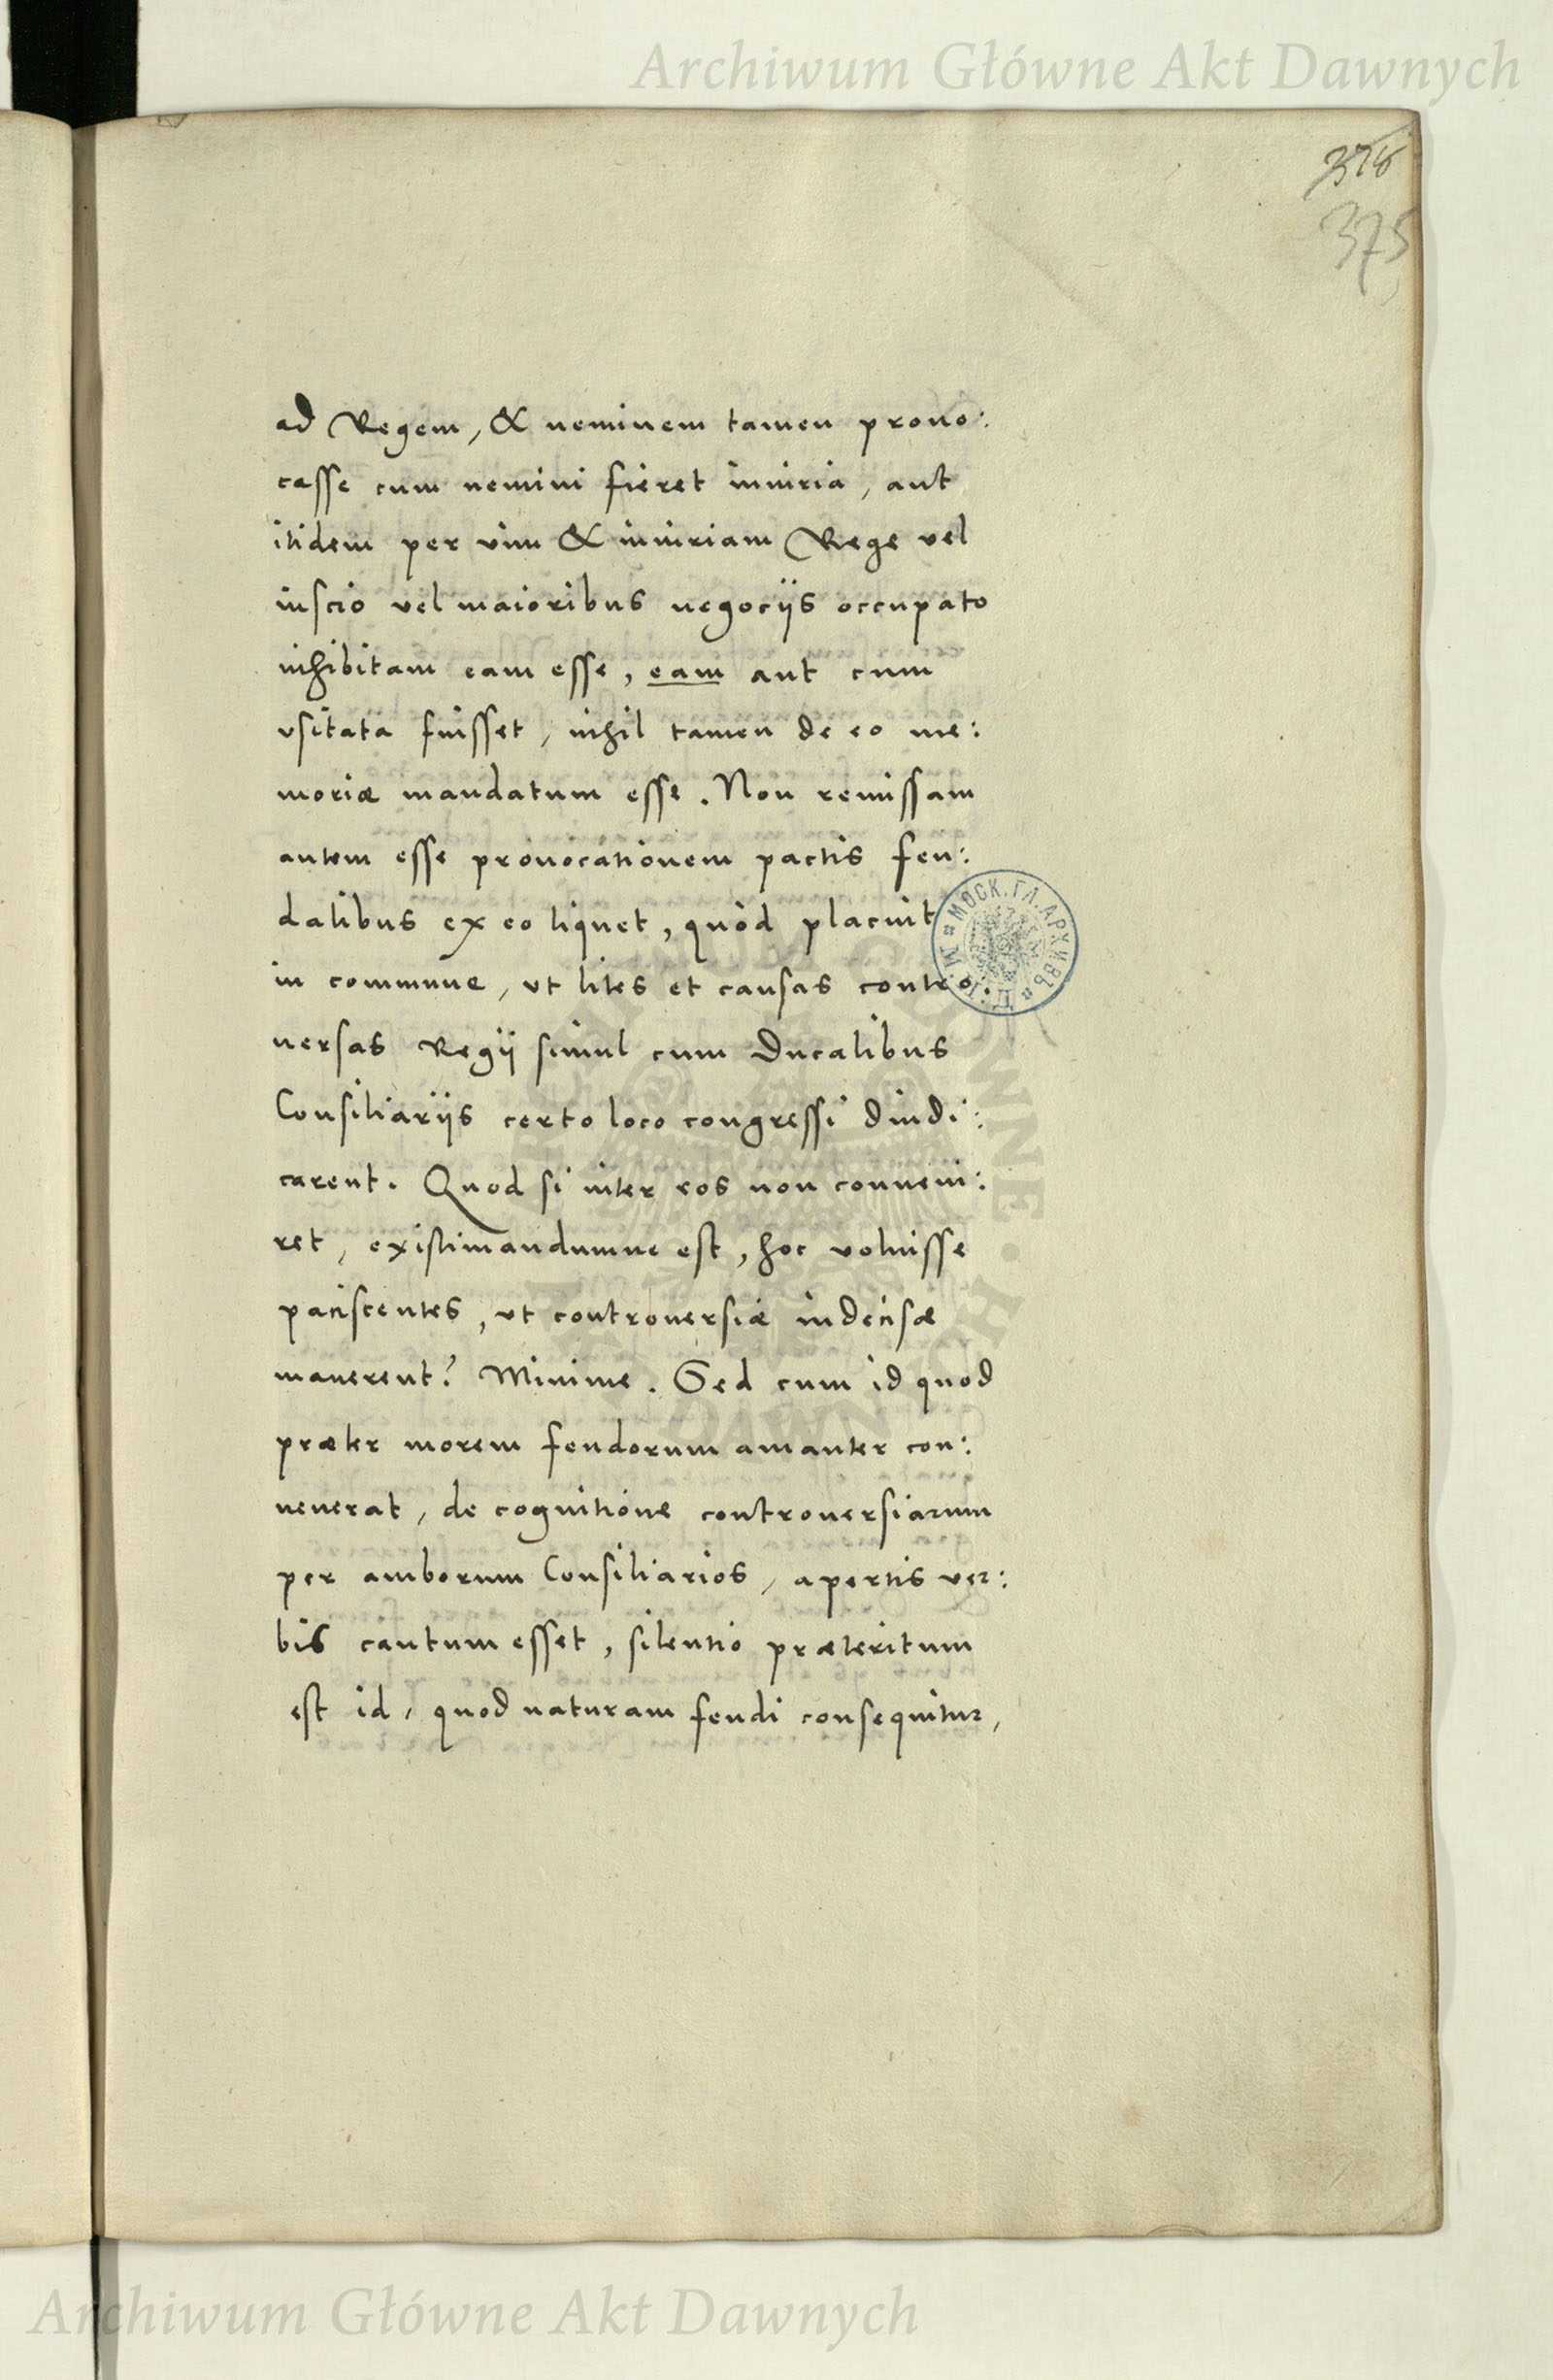 Archiwum Główne Akt Dawnych
375
ad Regem, & neminem tamen prouo:
casse cum nemini fieret iniuria, aut
itidem per vim & iniuriam Rege vel
inscio vel maioribus negocijs occupato
inhibitam eam esse, eam aut cum
vsitata fuisset, nihil tamen de eo me:
moriæ mandatum esse. Non remissam
autem esse prouocationem pactis feu:
dalibus ex eo liquet, quòd placuit
in commune, vt lites et causas contro:
uersas Regij simul cum Ducalibus
Consiliarijs certo loco congressi diudi:
carent. Quod si inter eos non conueni:
ret, existimandumne est, hoc voluisse
paciscentes, vt controuersiæ indecisæ
manerent? Minime. Sed cum id quod
præter morem feudorum amanter con:
uenerat, de cognitione controuersiarum
per amborum Consiliarios, apertis ver:
bis cautum esset, silentio præteritum
est id, quod naturam feudi consequitur,
МОСК. ГЛ. АРХИВЪ
Archiwum Główne Akt Dawnych